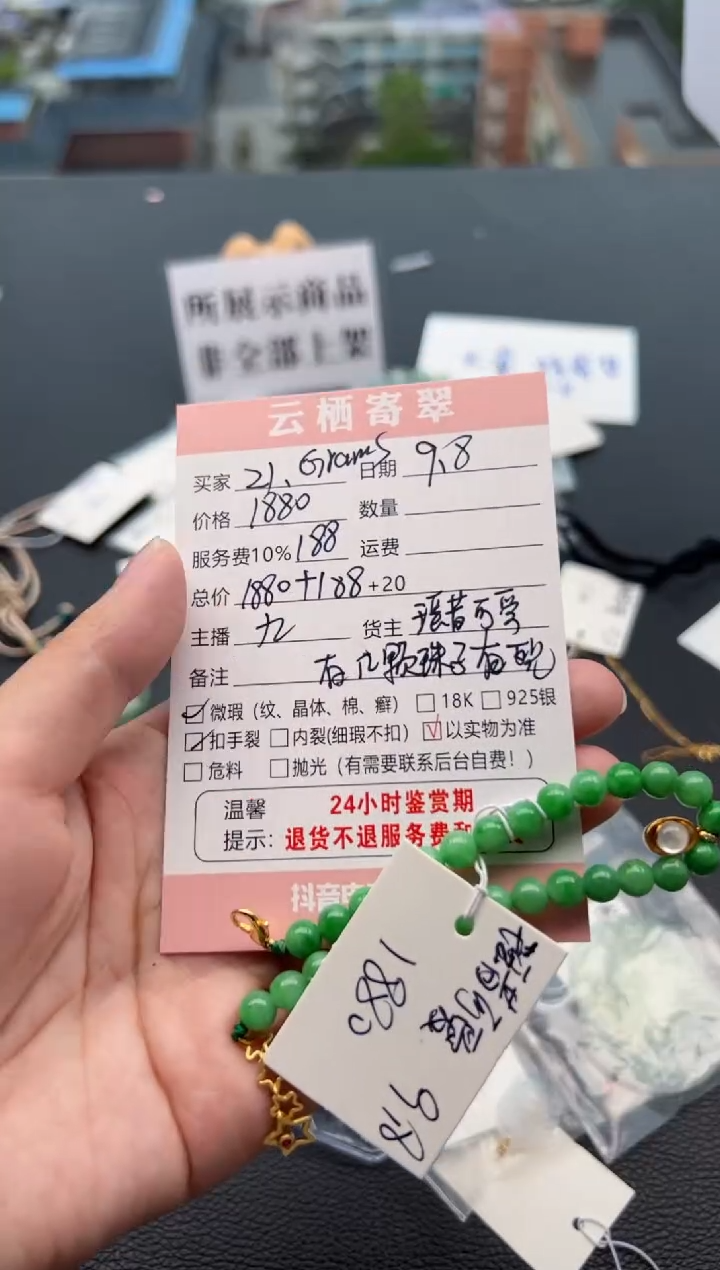 所展示商品
非全部上架
云栖寄翠
买家 21. Grams 日期 9.8
价格 1880 数量
服务费10% 188 运费
总价 1880+188+20
主播 九 货主 瑶昔可爱
备注 有几颗珠子有
微瑕(纹、晶体、棉、癣) 18K 925银
扣手裂 内裂(细瑕不扣) √以实物为准
危料 抛光(有需要联系后台自费!)
温馨 24小时鉴赏期
提示: 退货不退服务费和
抖音
1880
9.8